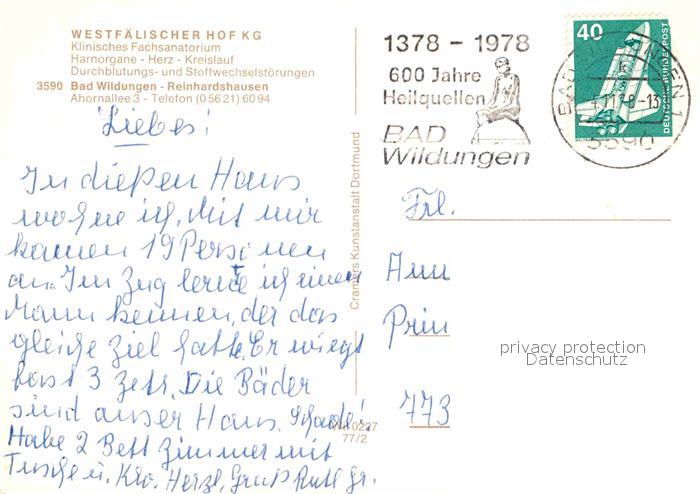 WESTFÄLISCHER HOF KG
Klinisches Fachsanatorium
Harnorgane - Herz - Kreislauf
Durchblutungs- und Stoffwechselstörungen
3590 Bad Wildungen - Reinhardshausen
Ahornallee 3 - Telefon (0 56 21) 60 94
Liebes!
In dießen Haus
wohne ich. Mit mir
kamen 19 Personen
an. Im Zug lernte ich einen
Mann kennen, der das
gleiche Ziel hatte. Er wiegt
fast 3 Zetr. Die Bäder
sind auser Haus. Schade!
Habe 2 Bett Zimmer mit
Tusche u. Klo. Herzl. Gruß Ruth Gr.
Cramers Kunstanstalt Dortmund
0227
77/2
1378 - 1978
600 Jahre
Heilquellen
BAD
Wildungen
40
DEUTSCHE BUNDESPOST
BAD WILDUNGEN 1
3590
Frl.
Prin
773
privacy protection
Datenschutz